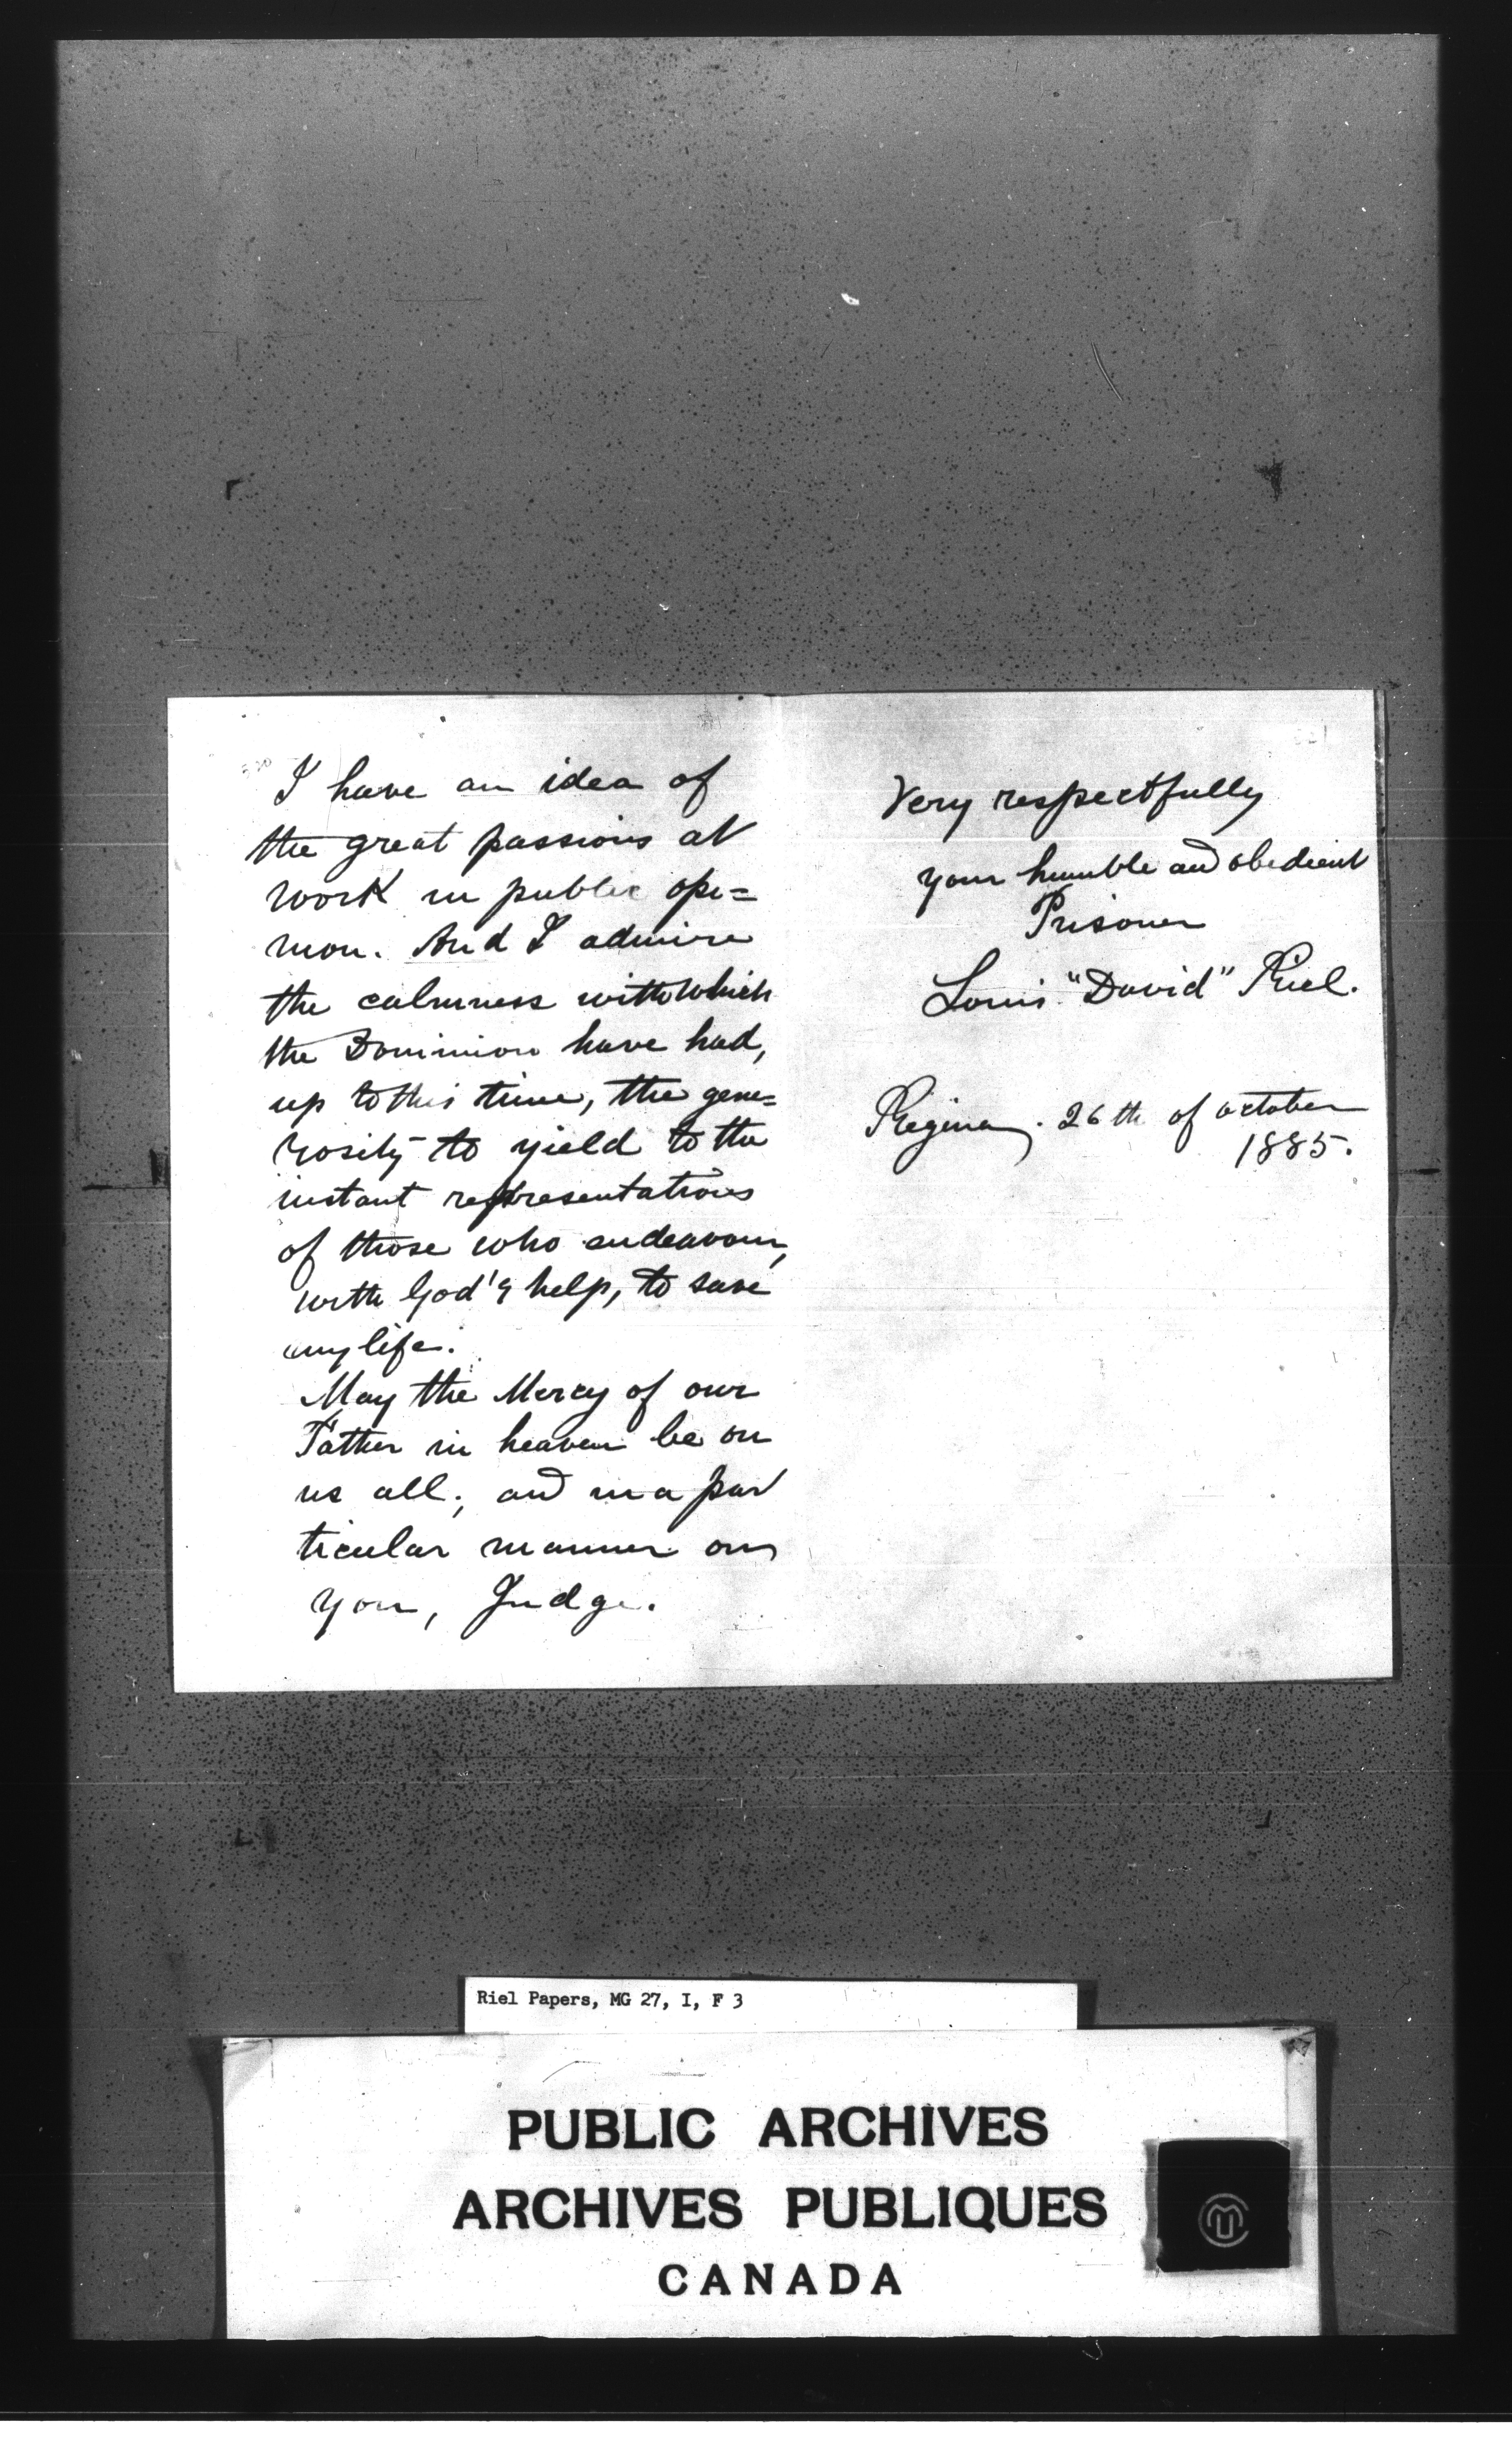 I have an idea of
the great passions at
work in public opi=
nion. And I admire
the calmness with which
the Dominion have had,
up to this time, the gene=
rosity to yield to the
instant representations
of those who endeavour,
with God's help, to save
my life.
May the Mercy of our
Father in heaven be on
us all; and in a par
ticular manner on
you, Judge.
Very respectfully
your humble and obedient
Prisoner
Louis "David" Riel.
Regina. 26th of october
1885.
Riel Papers, MG 27, I, F 3
PUBLIC ARCHIVES
ARCHIVES PUBLIQUES
CANADA